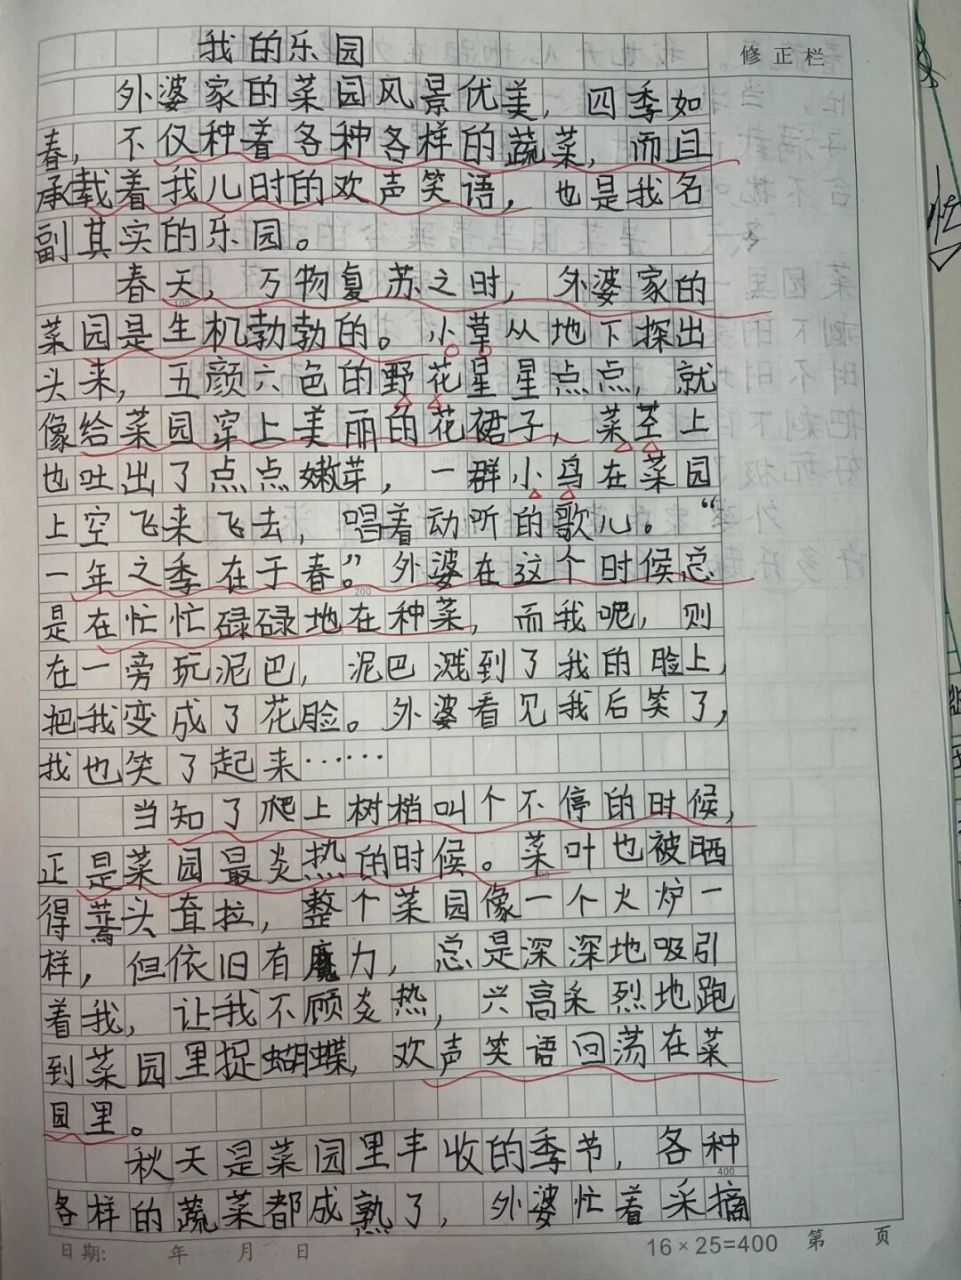 我的乐园
修正栏
外婆家的菜园风景优美，四季如
春，不仅种着各种各样的蔬菜，而且
承载着我儿时的欢声笑语，也是我名
副其实的乐园。
春天，万物复苏之时，外婆家的
菜园是生机勃勃的。小草从地下探出
头来，五颜六色的野花星星点点，就
像给菜园穿上美丽的花裙子，菜茎上
也吐出了点点嫩芽，一群小鸟在菜园
上空飞来飞去，唱着动听的歌儿。“
一年之季在于春”。外婆在这个时候总
是在忙忙碌碌地在种菜，而我呢，则
在一旁玩泥巴，泥巴溅到了我的脸上，
把我变成了花脸。外婆看见我后笑了，
我也笑了起来……
当知了爬上树梢叫个不停的时候，
正是菜园最炎热的时候。菜叶也被晒
得蔫头耷拉，整个菜园像一个火炉一
样，但依旧有魔力，总是深深地吸引
着我，让我不顾炎热，兴高采烈地跑
到菜园里捉蝴蝶，欢声笑语回荡在菜
园里。
秋天是菜园里丰收的季节，各种
400
各样的蔬菜都成熟了，外婆忙着采摘
日期： 年 月 日 16×25=400 第 页